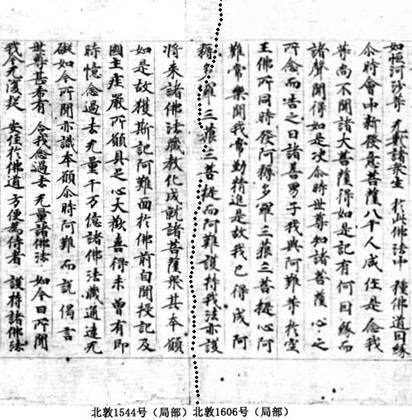 如恒河沙等 无數諸衆生 於此佛法中 種佛道因緣
尒時會中新發意菩薩八千人咸作是念我
等尚不聞諸大菩薩得如是記有何因緣而
諸聲聞得如是决尒時世尊知諸菩薩心之
所念而告之曰諸善男子我與阿難等於空
王佛所同時發阿耨多羅三藐三菩提心阿
難常樂多聞我常勤精進是故我已得成阿
耨多羅三藐三菩提而阿難護持我法亦護
將來諸佛法藏教化成就諸菩薩衆其本願
如是故獲斯記阿難面於佛前自聞授記及
國土莊嚴所願具足心大歡喜得未曾有即
時憶念過去无量千万億諸佛法藏通達无
礙如今所聞亦識本願尒時阿難而說偈言
世尊甚希有 令我念過去 无量諸佛法 如今日所聞
我今无復疑 安住於佛道 方便為侍者 護持諸佛法
北敦1544号（局部） 北敦1606号（局部）